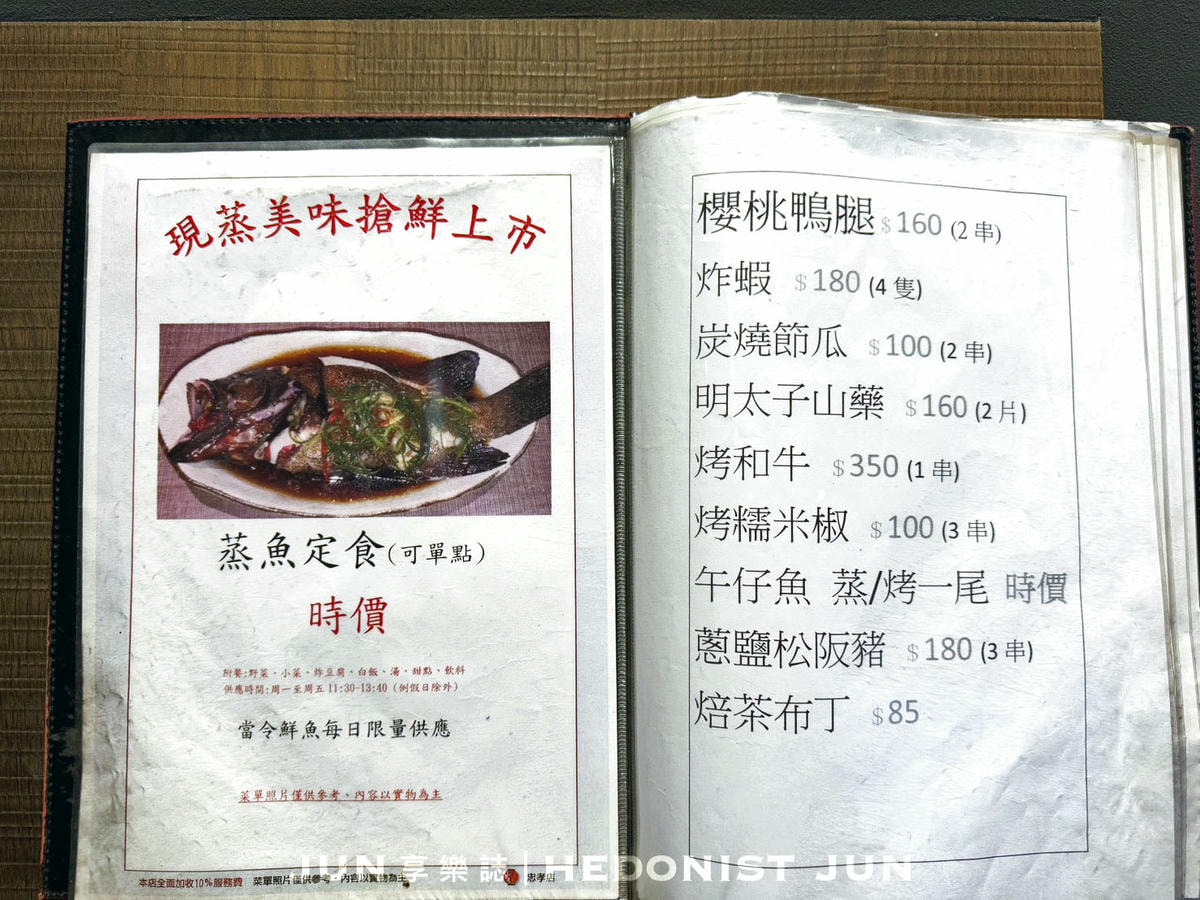 現蒸美味搶鮮上市
蒸魚定食(可單點)
時價
附餐:野菜、小菜、炸豆腐、白飯、湯、甜點、飲料
供應時間:周一至周五 11:30-13:40 (例假日除外)
當令鮮魚每日限量供應
菜單照片僅供參考、內容以實物為主
本店全面加收10%服務費 菜單照片僅供參考、內容以實物為主 忠孝店
櫻桃鴨腿 $160 (2 串)
炸蝦 $180 (4 隻)
炭燒節瓜 $100 (2 串)
明太子山藥 $160 (2 片)
烤和牛 $350 (1 串)
烤糯米椒 $100 (3 串)
午仔魚 蒸/烤一尾 時價
蔥鹽松阪豬 $180 (3 串)
焙茶布丁 $85
JUN 享樂誌 | HEDONIST JUN